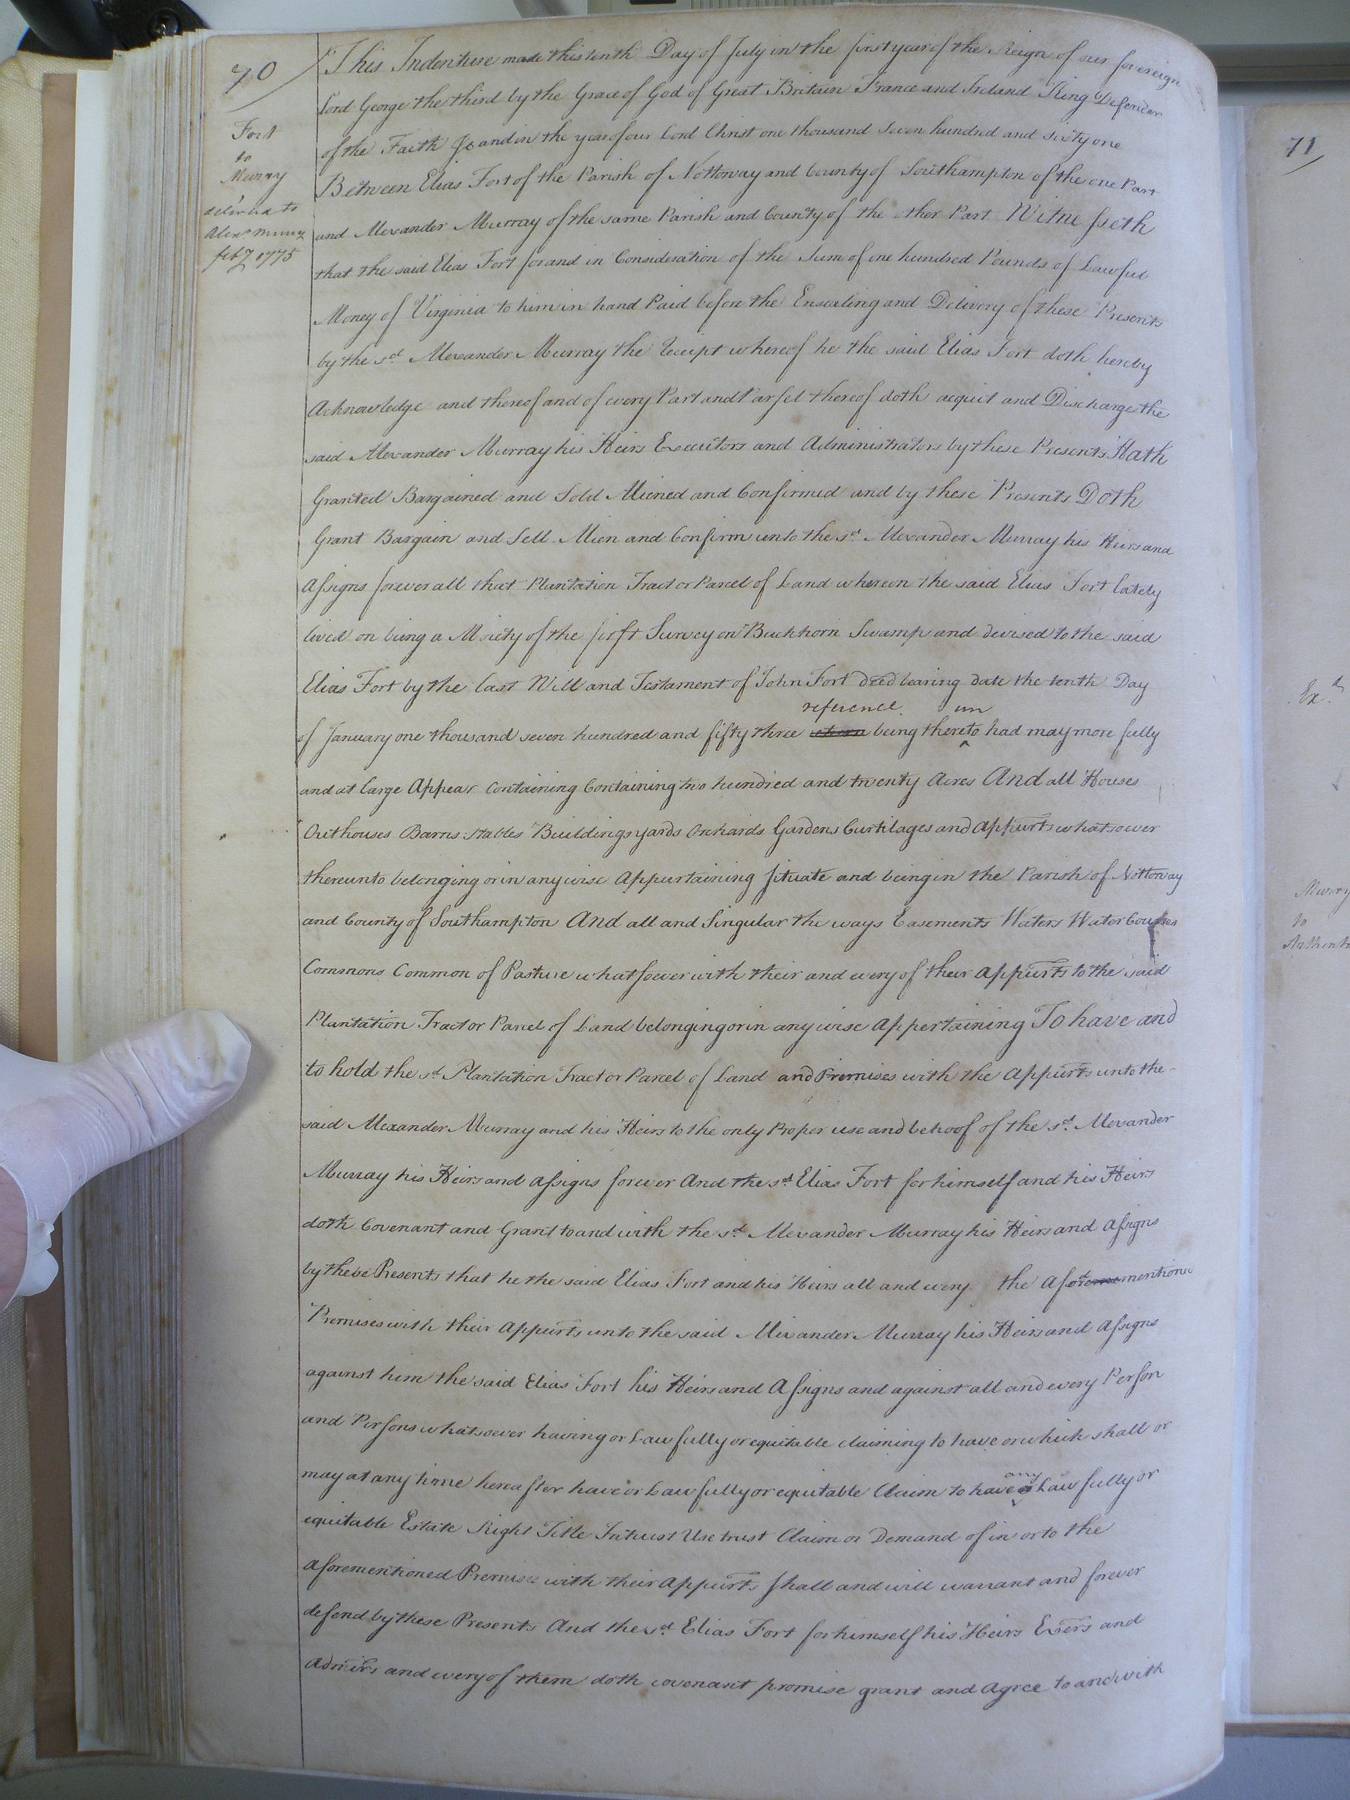 70
Fort
to
Murry
deliv'd to
Alexr Murry
feby 1775
This Indenture made this tenth Day of July in the first year of the Reign of our sovereign
Lord George the third by the Grace of God of Great Britain France and Ireland King Defender
of the Faith &c and in the year of our Lord Christ one thousand seven hundred and sixty one
Between Elias Fort of the Parish of Nottoway and County of Southampton of the one Part
and Alexander Murray of the same Parish and County of the other Part Witnesseth
that the said Elias Fort for and in Consideration of the Sum of one hundred Pounds of Lawful
Money of Virginia to him in hand Paid before the Ensealing and Delivery of these Presents
by the sd Alexander Murray the Receipt whereof he the said Elias Fort doth hereby
Acknowledge and thereof and of every Part and Parsel thereof doth acquit and Discharge the
said Alexander Murray his Heirs Executors and Administrators by these Presents Hath
Granted Bargained and Sold Aliened and Confirmed and by these Presents Doth
Grant Bargain and Sell Alien and Confirm unto the sd Alexander Murray his Heirs and
Assigns forever all that Plantation Tract or Parcel of Land whereon the said Elias Fort lately
lived on being a Moiety of the first Survey on Buckhorn Swamp and devised to the said
Elias Fort by the last Will and Testament of John Fort Deed bearing date the tenth Day
reference un
of January one thousand seven hundred and fifty three being thereto had may more fully
and at large Appear Containing Containing two hundred and twenty Acres And all Houses
Outhouses Barns Stables Buildings yards Orchards Gardens Curtilages and Appurts whatsoever
thereunto belonging or in any wise Appurtaining Situate and being in the Parish of Nottoway
and County of Southampton And all and Singular the ways Easements Waters Water Courses
Commons Common of Pasture whatsoever with their and every of their Appurts to the said
Plantation Tract or Parcel of Land belonging or in any wise Appertaining To have and
to hold the sd Plantation Tract or Parcel of Land and Premises with the Appurts unto the
said Alexander Murray and his Heirs to the only Proper use and behoof of the sd Alexander
Murray his Heirs and Assigns forever And the sd Elias Fort for himself and his Heirs
doth Covenant and Grant to and with the sd Alexander Murray his Heirs and Assigns
by these Presents that he the said Elias Fort and his Heirs all and every the mentiond
Premises with their Appurts unto the said Alexander Murray his Heirs and Assigns
against him the said Elias Fort his Heirs and Assigns and against all and every Person
and Persons whatsoever having or Lawfully or equitable claiming to have or which shall or
any
may at any time hereafter have or Lawfully or equitable Claim to have Lawfully or
equitable Estate Right Title Intrust Use trust Claim or Demand of in or to the
aforementioned Premises with their Appurts shall and will warrant and forever
defend by these Presents And the sd Elias Fort for himself his Heirs Exers and
Admirs and every of them doth covenant promise grant and Agree to and with
71
Exd
Murry
to